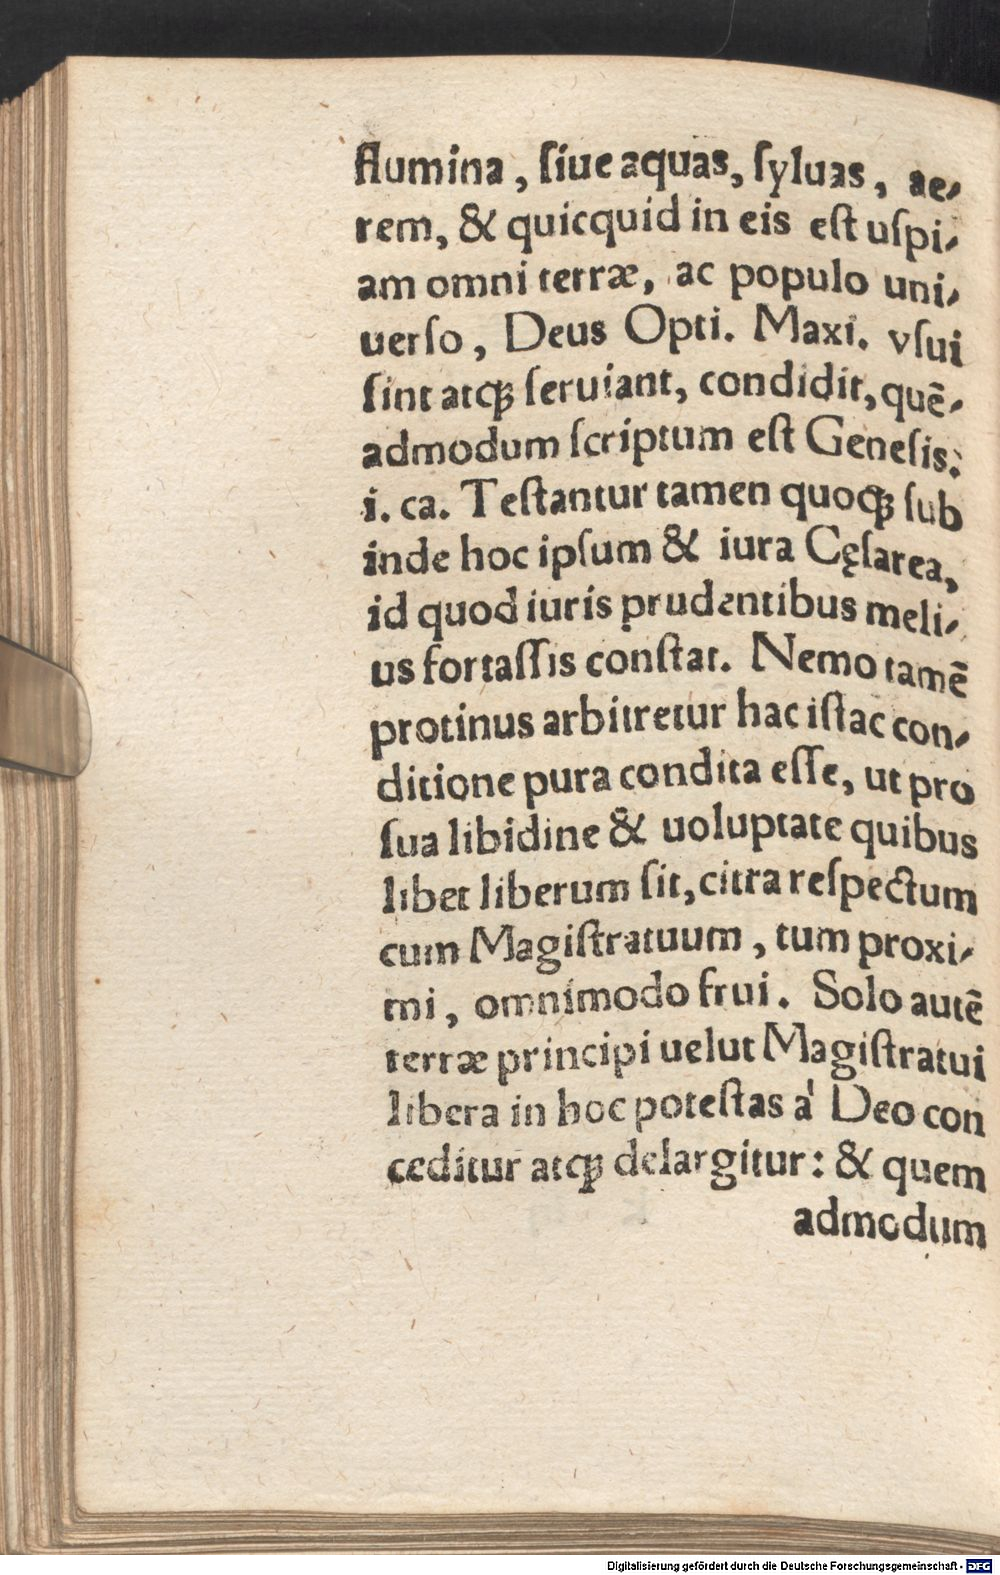 flumina, ſiue aquas, ſyluas, ae-
rem, & quicquid in eis eſt uſpi-
am omni terræ, ac populo uni-
uerſo, Deus Opti. Maxi. vſui
ſint atq; ſeruiant, condidit, quē-
admodum ſcriptum eſt Geneſis.
i. ca. Teſtantur tamen quoq; ſub
inde hoc ipſum & iura Cęſarea,
id quod iuris prudentibus meli-
us fortaſſis conſtat. Nemo tamē
protinus arbitretur hac iſtac con-
ditione pura condita eſſe, ut pro
ſua libidine & uoluptate quibus
libet liberum ſit, citra reſpectum
cum Magiſtratuum, tum proxi-
mi, omnimodo frui. Solo autē
terræ principi uelut Magiſtratui
libera in hoc poteſtas à Deo con
ceditur atq; delargitur: & quem
admodum
Digitalisierung gefördert durch die Deutsche Forschungsgemeinschaft - DFG